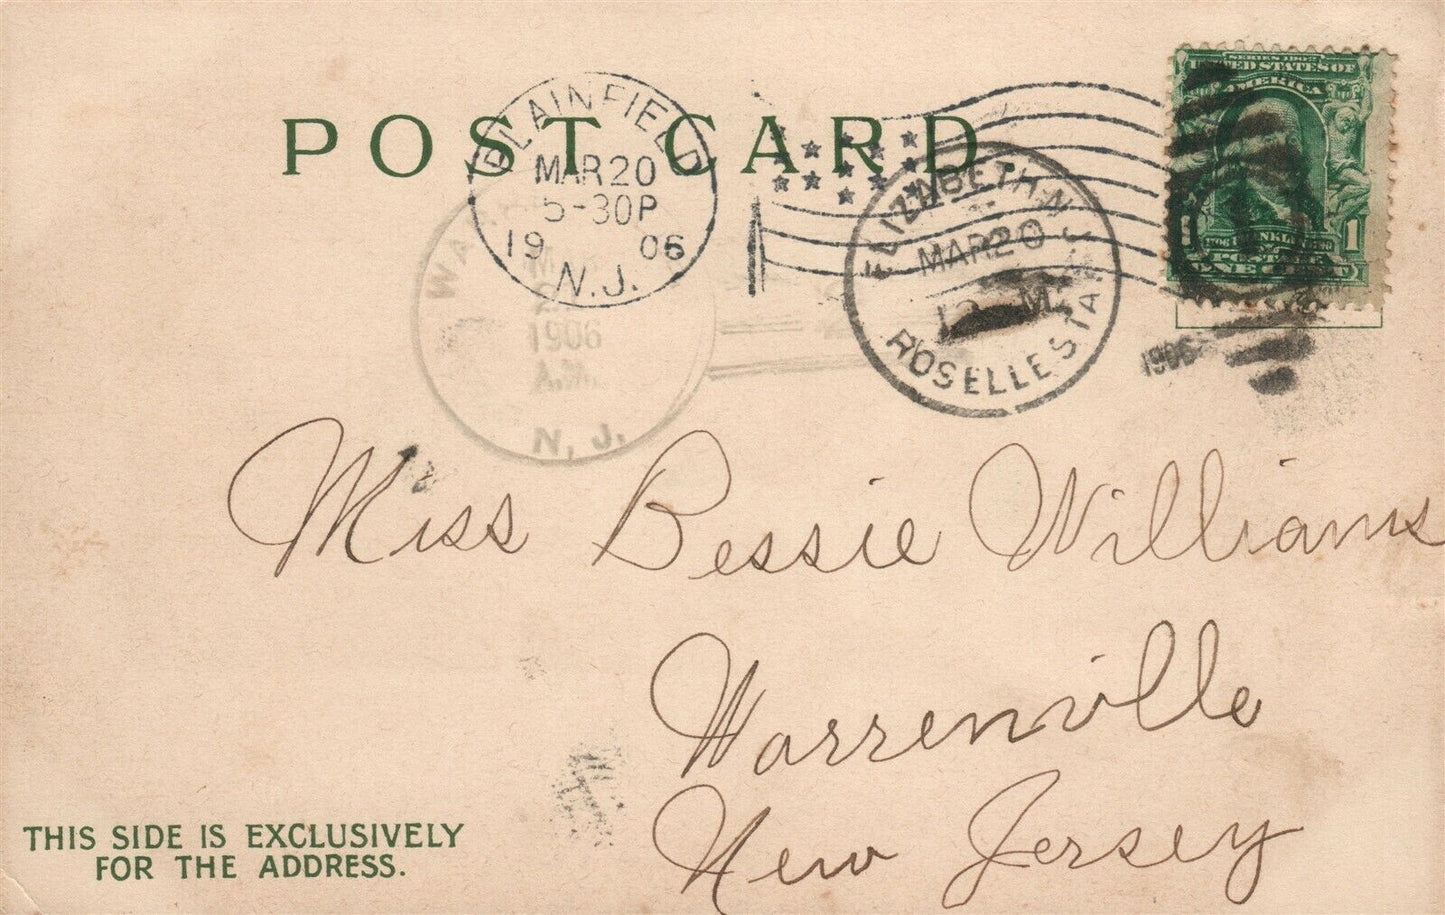 POST CARD
PLAINFIELD
MAR 20
5-30P
19 06
N.J.
1906
A.M.
N. J.
ELIZABETH N.J.
MAR 20
M
ROSELLE STA.
1906
SERIES 1902
UNITED STATES OF
AMERICA
FRANKLIN
POSTAGE
1 ONE CENT 1
Miss Bessie Williams
Warrenville
New Jersey
THIS SIDE IS EXCLUSIVELY
FOR THE ADDRESS.